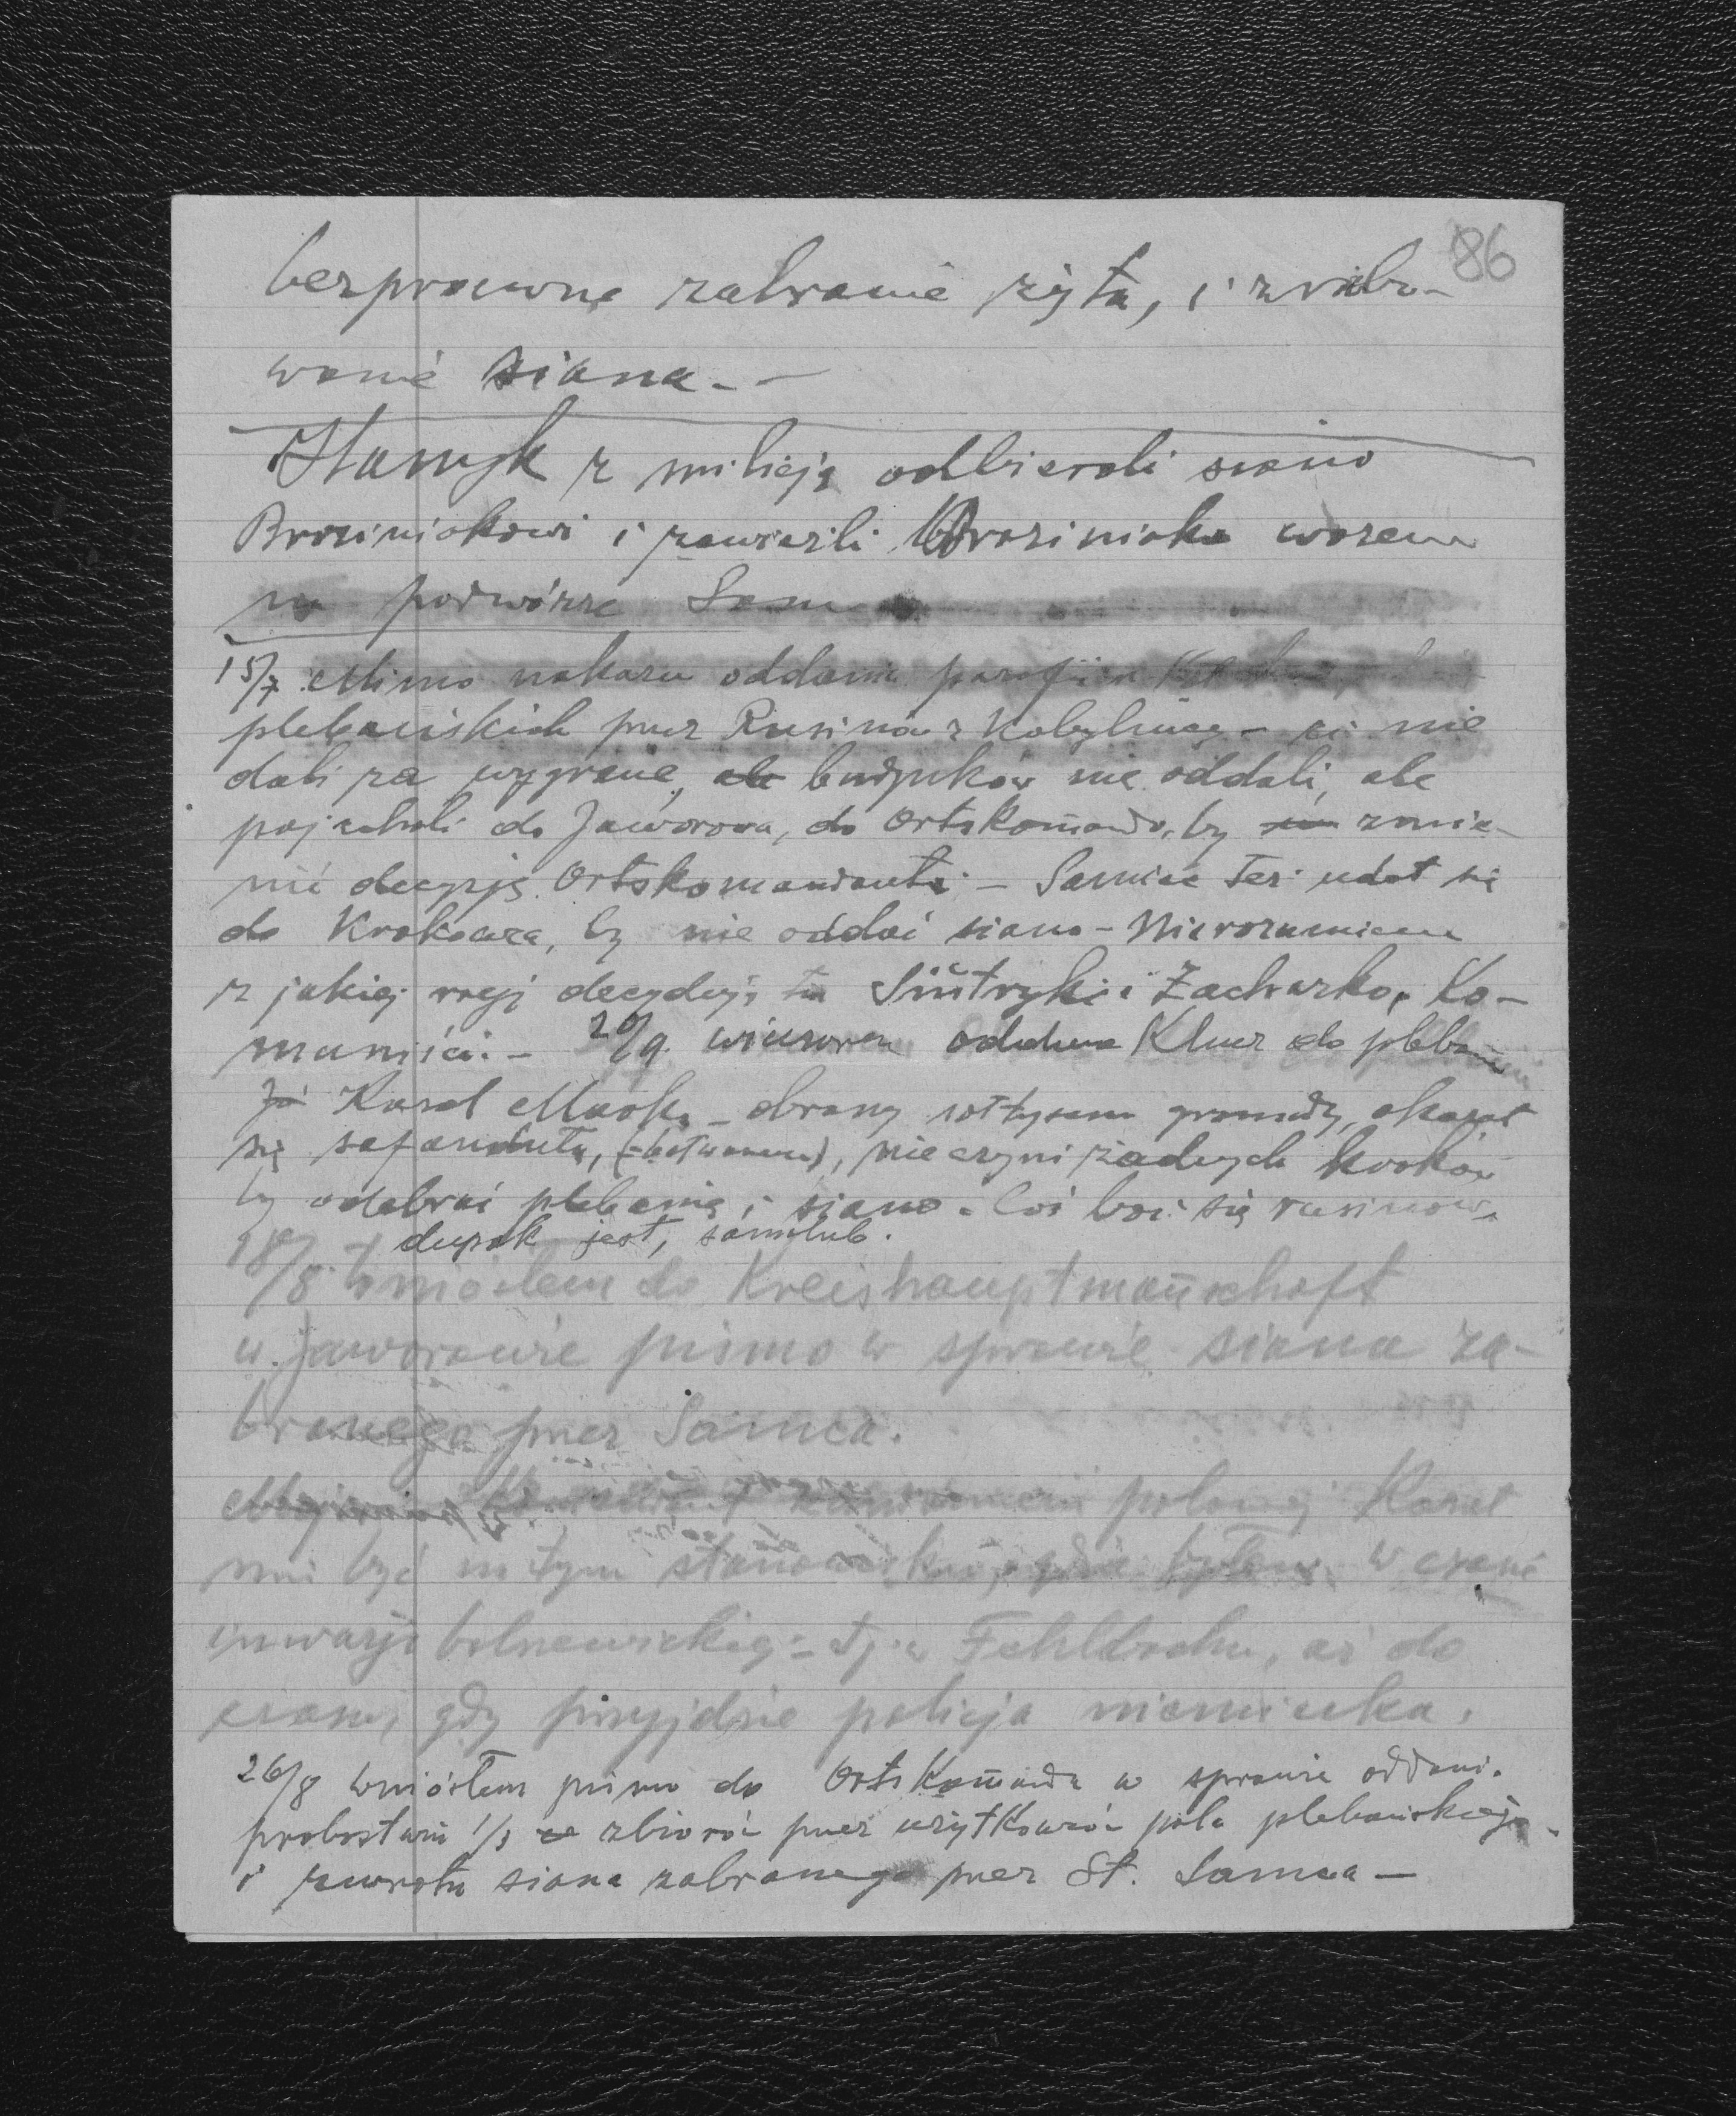 86
bezprawne zabranie żyta, i zrabo-
wanie siana. -
Hamyk z milicją odbierali siano
Broziniakowi i zawieźli Broziniaka wozem
na podwórze Sam
15/7 Mimo nakazu oddania parafii
plebańskich przez Rusinów z Kobylnicy - ci nie
dali za wygranę, ale budynków nie oddali, ale
pojechali do Jaworowa, do Ortskomando, by zmie-
nić decyzję Ortskomandanta - Samiec też udał się
do Krakowca, by nie oddać siana - Nierozumiem
z jakiej racji decydują tu i Zacharko, Ko-
muniści. - 20/9. wieczorem oddano Klucz do plebanii
Karol Maska obrany sołtysem gromady, okazał
się safandułą, (-bałwanem), nie czyni żadnych kroków
by odebrać plebanię i siano. Coś boi się rusinów.
dupak jest, samolub.
18/8. Wniosłem do Kreishauptmannschaft
w Jaworowie pismo w sprawie siana za-
branego przez Samca.
polowej Kazał
mi być na tym stanowisku, gdzie byłem w czasie
inwazji bolszewickiej - tj. w Fehlbachu, aż do
czasu, gdy przyjdzie policja niemiecka.
26/8 Wniosłem pismo do Ortskomanda w sprawie oddani.
probostwu 1/3 ze zbiorów przez użytkowców pola plebańskiego
i zwrotu siana zabranego przez St. Samca -